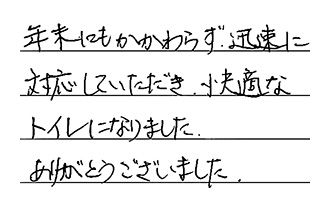 年末にもかかわらず.迅速に
対応していただき.快適な
トイレになりました.
ありがとうございました.